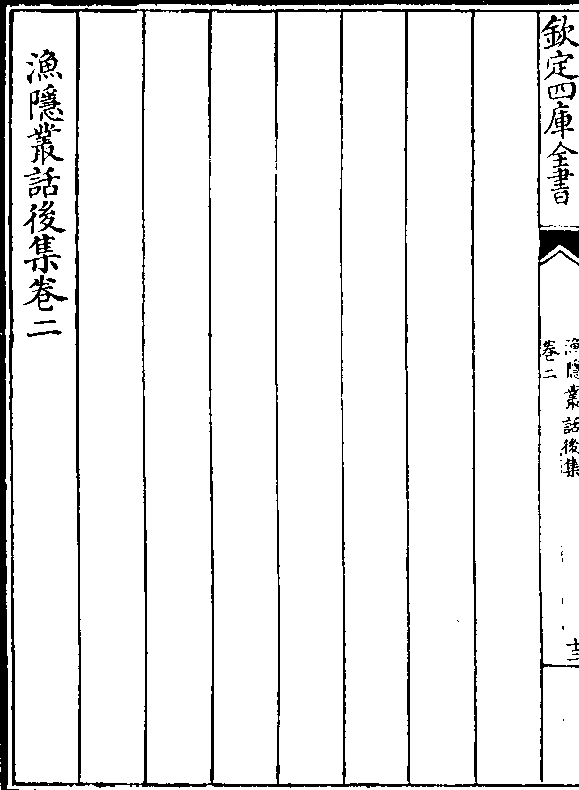 欽定四庫全書
漁隱叢話後集
卷二
十三
漁隱叢話後集卷二